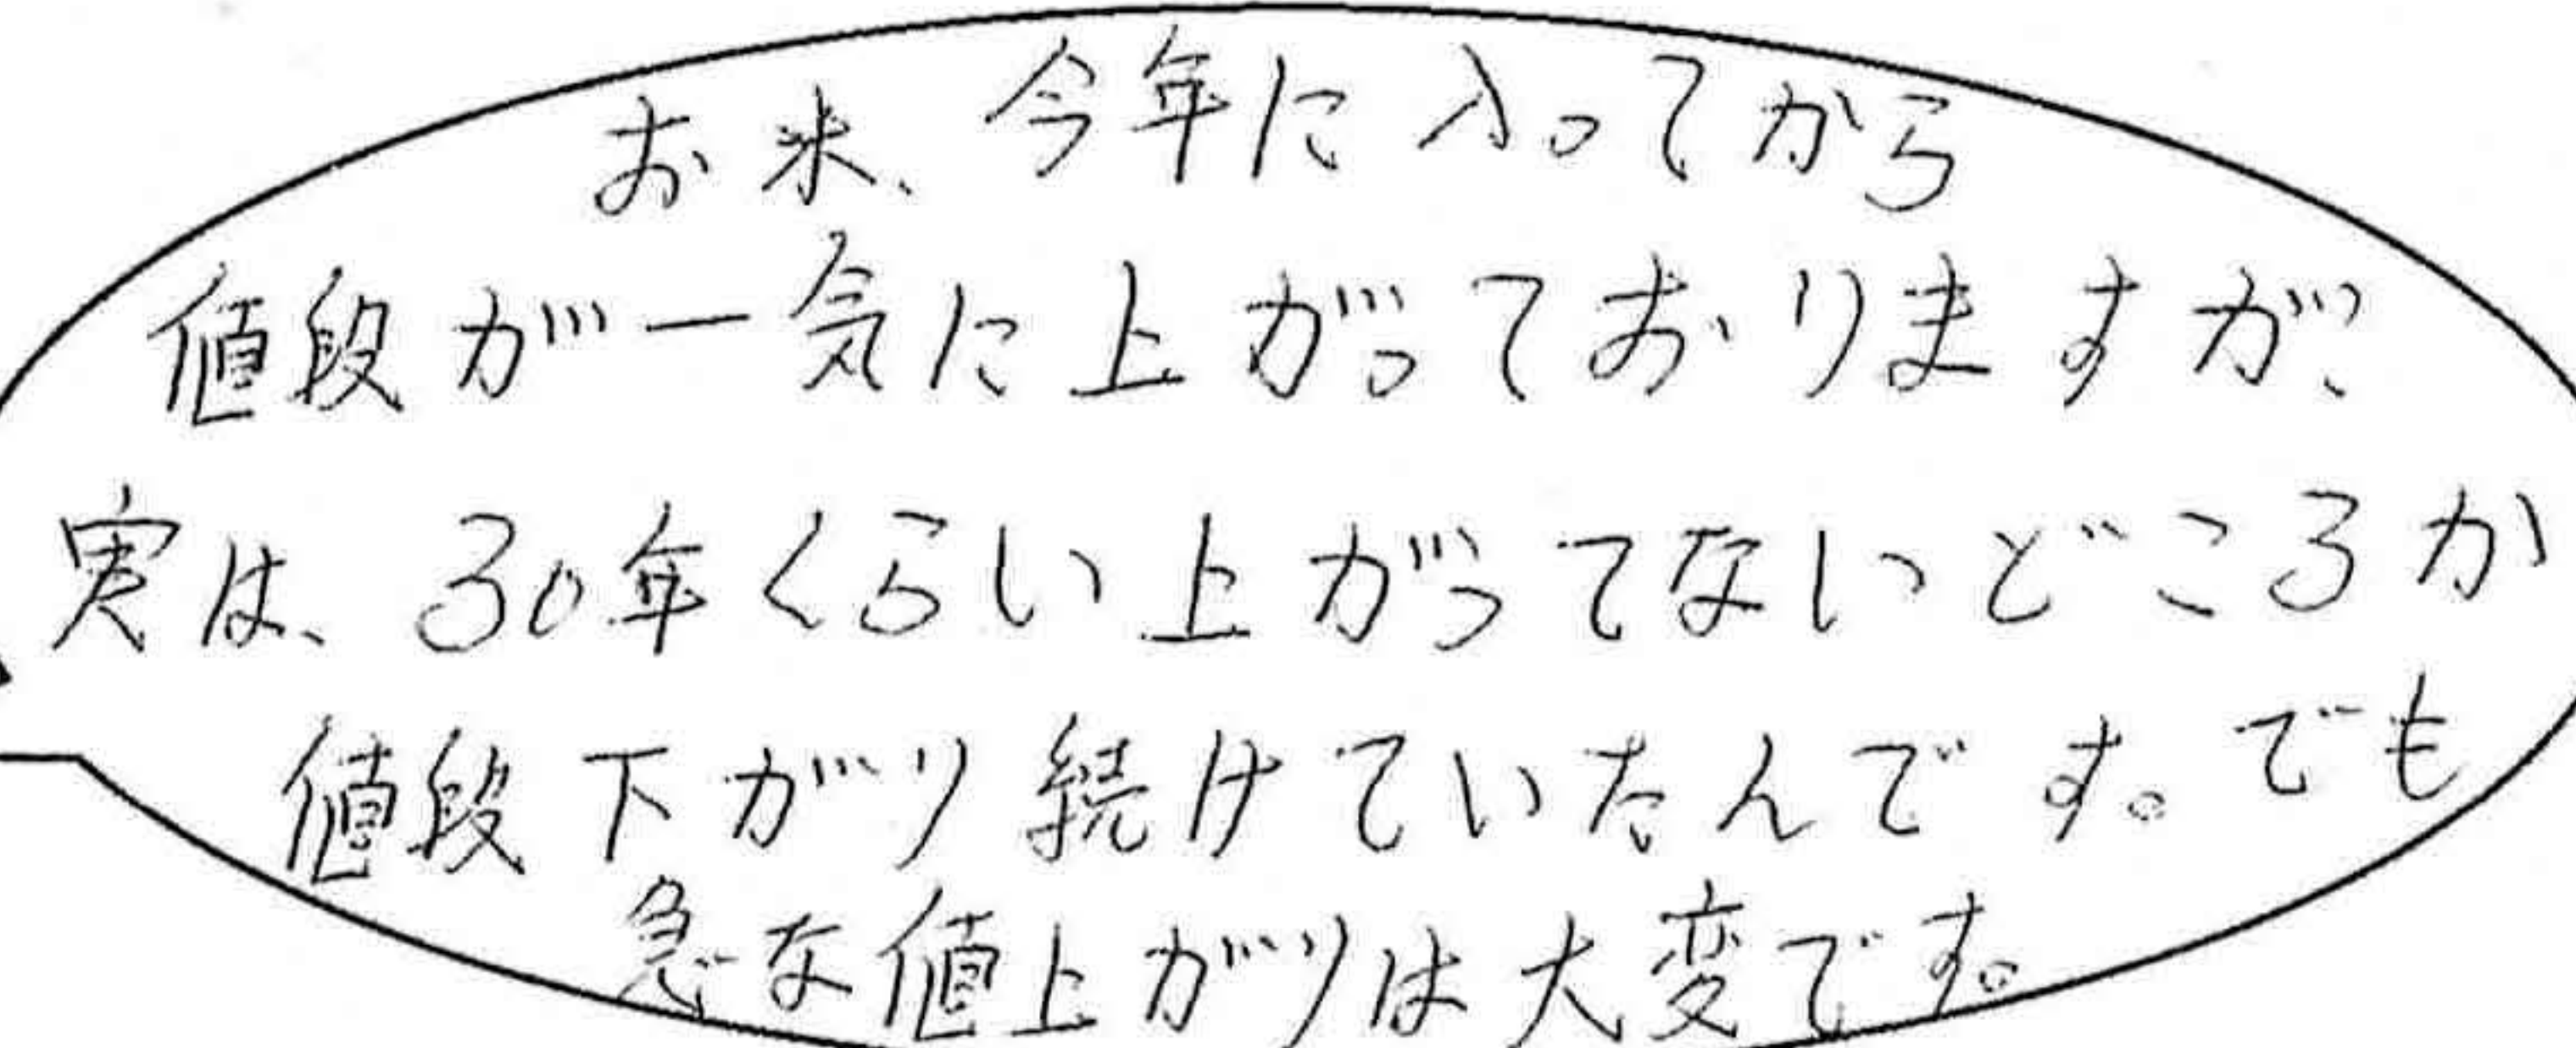 お米、今年に入ってから
値段が一気に上がっておりますが、
実は、30年くらい上がってないどころか
値段下がり続けていたんです。でも
急な値上がりは大変です。